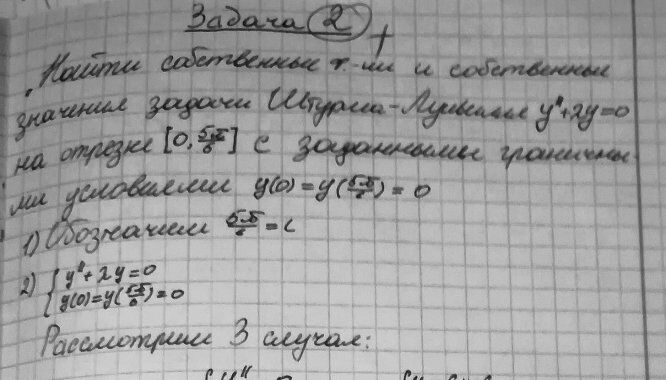 Задача 2
Найти собственные т.-ии и собственные
значения задачи Штурма-Лувилля y"+2y=0
на отрезке [0, ] с заданными граничны-
ми условиями y(0)=y( )=0
1) Обозначим =L
2) { y"+2y=0
y(0)=y( )=0
Рассмотрим 3 случая: